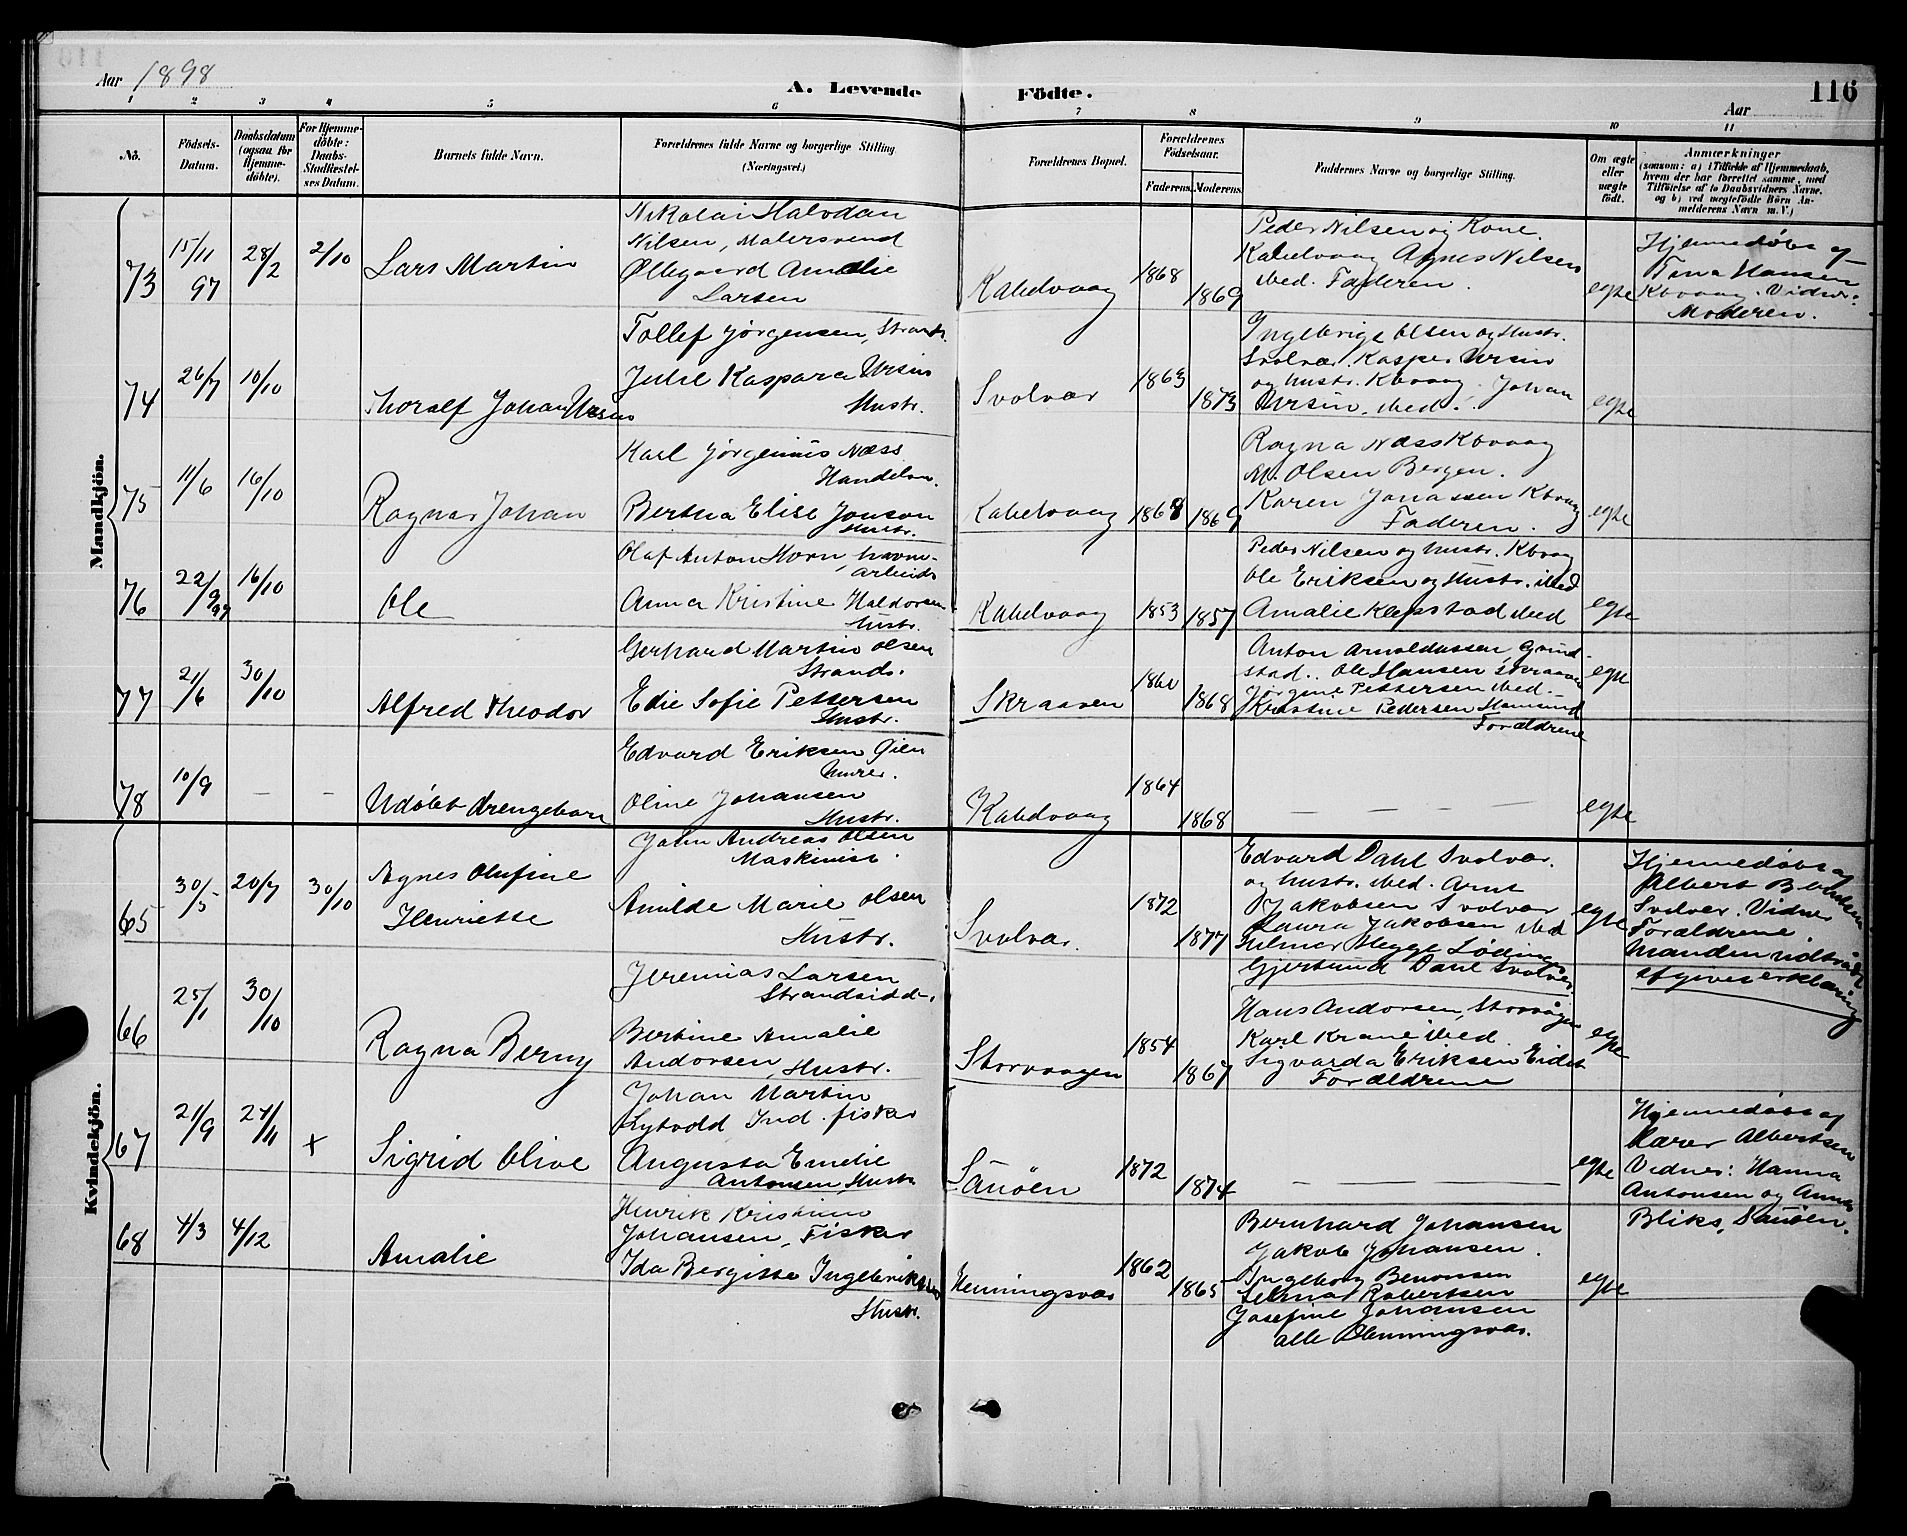 Aar 1898
A. Levende Födte.
Aar
116
1 2 3 4 5 6 7 8 9 10 11
No.
Födsels-
Datum.
Daabsdatum
(ogsaa for
Hjemme-
döbte).
For Hjemme-
döbte:
Daabs-
Stadfæstel-
ses Datum.
Barnets fulde Navn.
Forældrenes fulde Navne og borgerlige Stilling
(Næringsvei.)
Forældrenes Bopæl.
Forældrenes
Födselsaar.
Faderens.
Moderens.
Faddernes Navne og borgerlige Stilling.
Om ægte
eller
uægte
födt.
Anmærkninger
(saasom: a) i Tilfælde af Hjemmedaab,
hvem der har forrettet samme, med
Tilföielse af to Daabsvidners Navne,
og b) ved uægtefödte Börn An-
melderens Navn m. V.)
Mandkjön.
73
15/11
97
28/2
2/10
Lars Martin
Nikolai Halvdan
Nilsen, Malersvend
Øllegaard Amalie
Larsen
Kabelvaag
1868
1869
Peder Nilsen og Kone.
Kabelvaag Agnes Nilsen
ibed. Faderen.
egte
Hjemmedøbt af
Tina Hansen
Kbvaag. Vidner:
Moderen.
74
26/7
10/10
Thoralf Johan Ursin
Tollef Jørgensen, Strands.
Julie Kaspara Ursin
Hustr.
Svolvær
1863
1873
Ingebrigt Olsen og Hustr.
Svolvær. Kasper Ursin
og hustr. Kbvaag. Johan
Ursin, ibed.
egte
75
11/6
16/10
Ragnar Johan
Karl Jørginius Næss
Handelsm.
Bertha Elise Jonson
Hustr.
Kabelvaag
1868
1869
Ragna Næss Kbvaag
M. Olsen Bergen.
Karen Jonassen Kbvaag
Faderen.
egte
76
22/9
16/10
Ole
Olaf Anton Horn, havne-
arbeids
Anna Kristine Haldorsen
hustr.
Kabelvaag
1853
1857
Peder Nilsen og hustr. Kbvaag
Ole Eriksen og Hustr. ibed
Amalie Klepstad ibed
egte
77
21/6
30/10
Alfred Theodor
Gerhard Martin Olsen
Strands.
Edie Sofie Pettersen
Hustr.
Skraaven
1860
1868
Anton Arnoldussen Grind-
stad. Ole Hansen Skraaven
Jørgine Pettersen ibed.
Kristine Pedersen
Forældrene
egte
78
10/9
– –
Udøbt drengebarn
Edvard Eriksen Gien
Murer.
Oline Johansen
Hustr.
Kabelvaag
1864
1868
– – – –
egte
Kvindekjön.
65
30/5
20/7
30/10
Agnes Olufine
Henriette
John Andreas Olsen
Maskinist.
Amilde Marie Olsen
Hustr.
Svolvær.
1872
1877
Edvard Dahl Svolvær.
og hustr. ibed. Arnt
Jakobsen Svolvær
Laura Jakobsen ibed
Hilmar Hegge Lødingen
Gjertrud Dahl Svolvær.
egte
Hjemmedøbt af
Albert
Svolvær. Vidner
Forældrene
Manden udtraadt
afgives erklæring
66
25/1
30/10
Ragna Berny
Jeremias Larsen
Strandsidd.
Bertine Amalie
Andorsen, Hustr.
Storvaagen
1854
1867
Hans Andorsen, Storvågen
Karl Krane ibed.
Sigvarda Eriksen Eidet
Forældrene
egte
67
21/9
27/11
+
Sigrid Olive
Johan Martin
Lytvold Ind. fisker
Augusta Emelie
Antonsen, Hustr.
Sauöen
1872
1874
– – – –
egte
Hjemmedøbt af
Karer Albertsen
Vidner: Hanna
Antonsen og Anna
Bliks, Sauöen.
68
4/3
4/12
Amalie
Henrik Kristian
Johansen, Fisker
Ida Bergitte Ingebriktsen
Hustr.
Henningsvær
1862
1865
Bernhard Johansen
Jakob Johansen.
Ingeborg Benonsen
Selma Robertsen
Josefine Johansen
alle Henningsvær.
egte